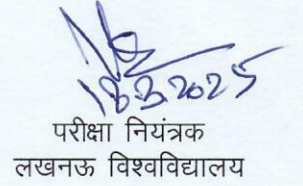 18.3.2025
परीक्षा नियंत्रक
लखनऊ विश्वविद्यालय